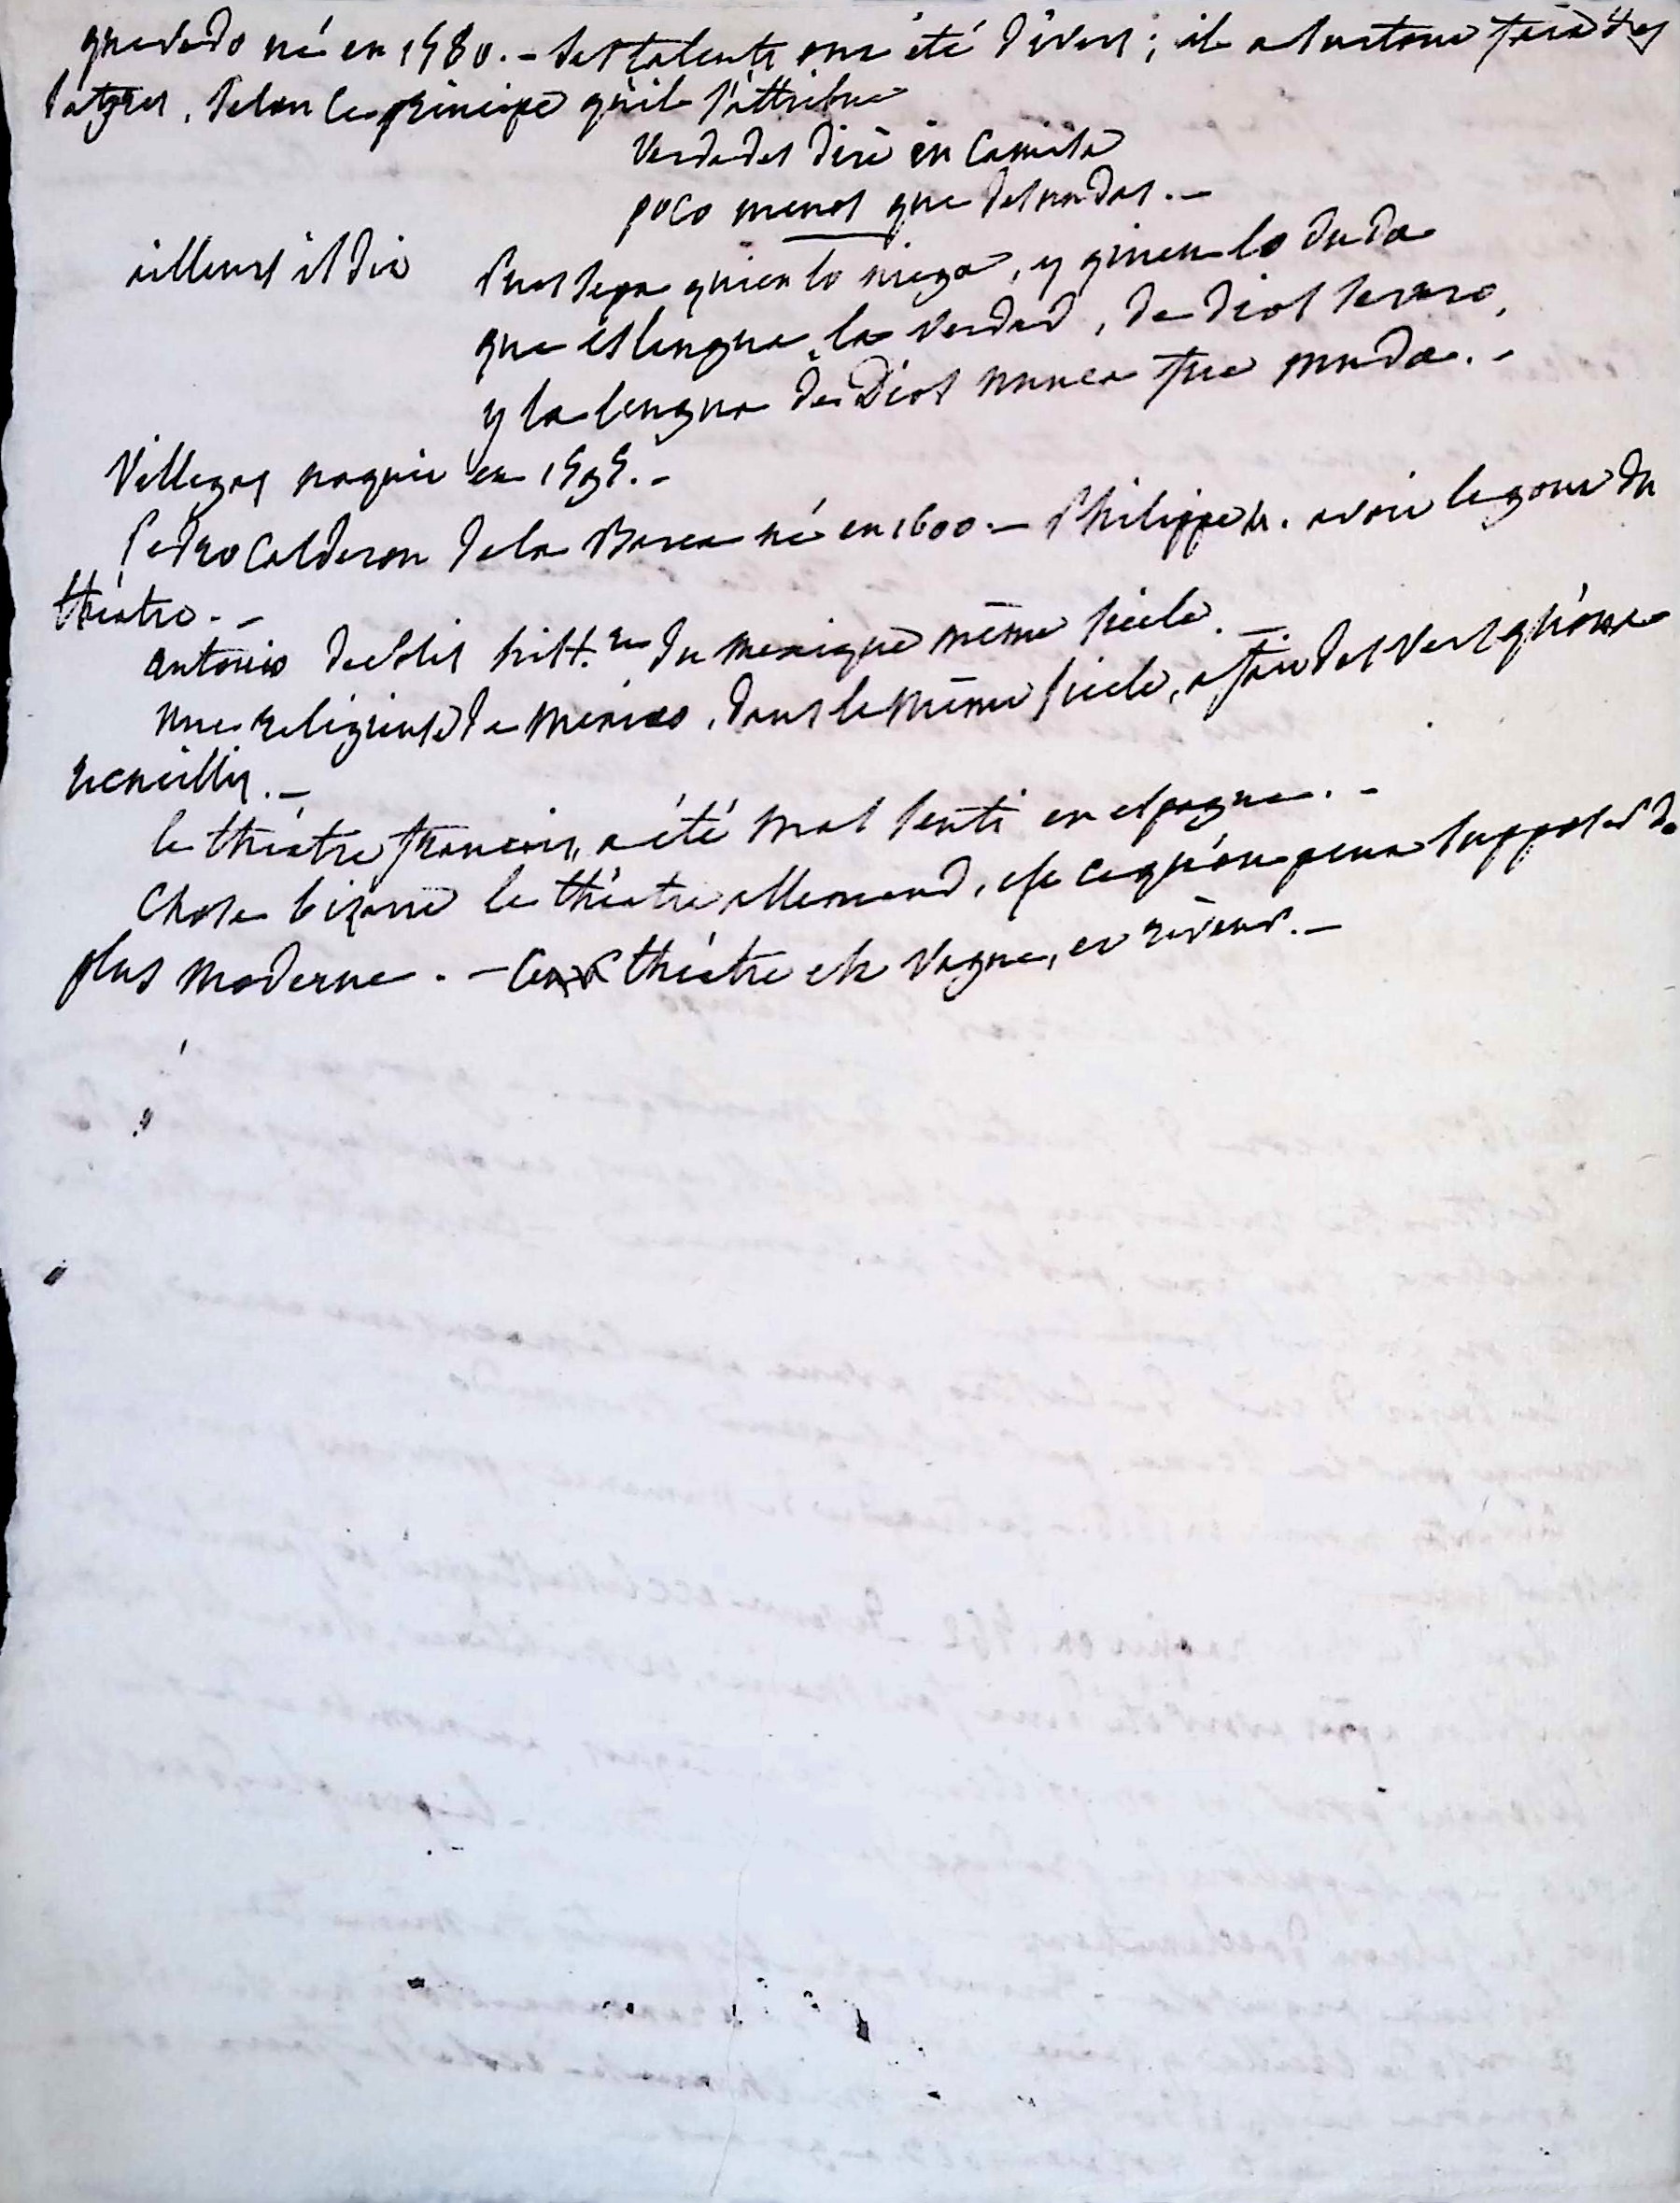 quevedo né en 1580. - Ses talents ont été divers ; il a surtout fait des
satyres, selon le principe qu'il s'attribue
Verdades diré en Camisa
poco menos que desnudas. -
ailleurs il dit Pues sepa quien lo niega, y quien lo duda
que es lengua, la verdad, de dios severo,
y la lengua de Dios nunca fue muda. -
Villegas naquit en 1595. -
Pedro Calderon de la Barca né en 1600. - Philippe 4. avoit le gout du
théatre. -
antonio de Solis hist. en du mexique même siècle. -
une religieuse de mexico, dans le même siècle, a fait des vers qu'on a
recueillis. -
le théatre françois, a été mal senti en espagne. -
Chose bizarre le théatre allemand, est ce qu'on peut supposer de
plus moderne. - Ce théatre est vague, et rêveur. -